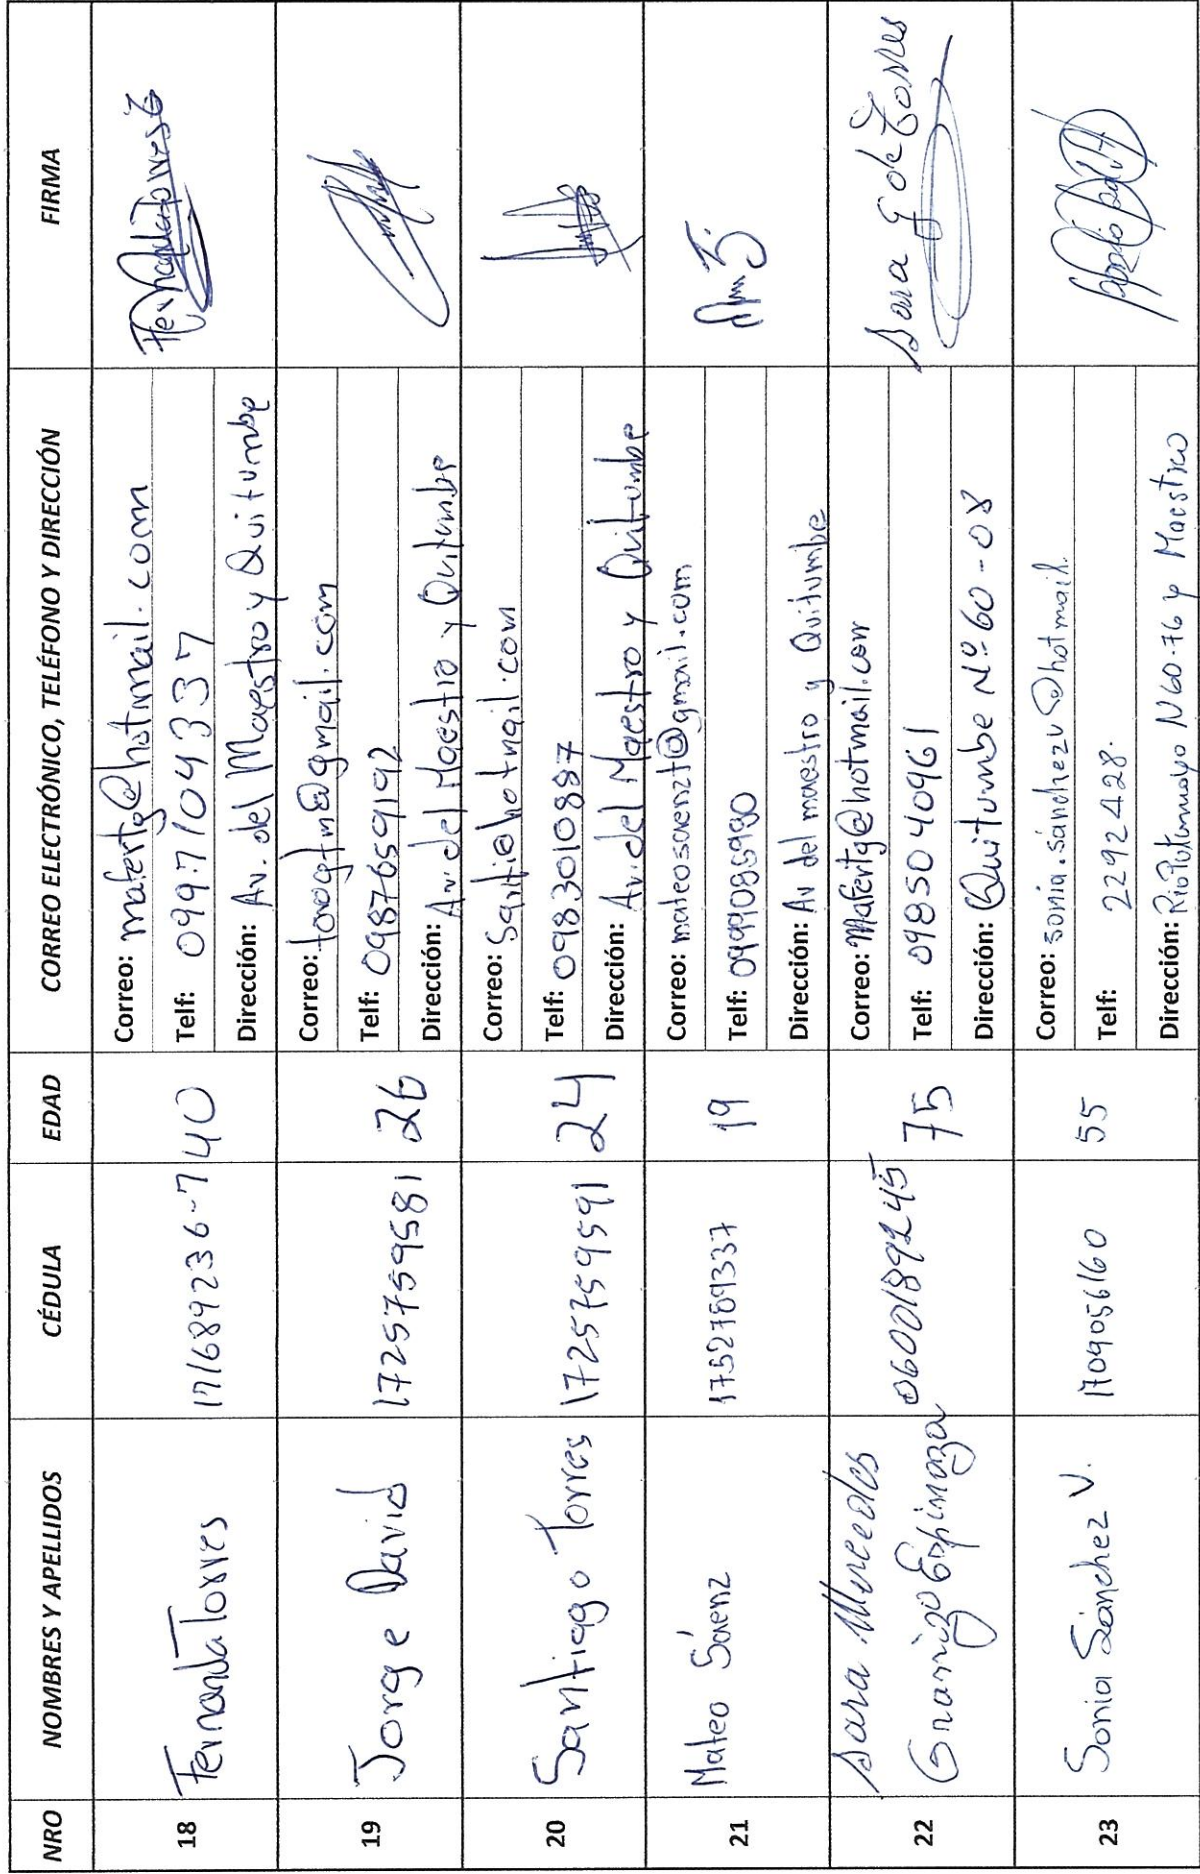 NRO NOMBRES Y APELLIDOS CÉDULA EDAD CORREO ELECTRÓNICO, TELÉFONO Y DIRECCIÓN FIRMA
18 Fernanda Torres 171689236-7 40
Correo: mafertg@hotmail.com
Telf: 0997104337
Dirección: Av. del Maestro y Quitumbe
19 Jorge David 1725759581 26
Correo:
Telf: 0987659192
Dirección: Av. del Maestro y Quitumbe
20 Santiago Torres 1725759591 24
Correo: Santi@hotmail.com
Telf: 0983010887
Dirección: Av. del Maestro y Quitumbe
21 Mateo Sáenz 1752789337 19
Correo: mateosaenzt@gmail.com
Telf: 0999085980
Dirección: Av del maestro y Quitumbe
22 Sara Mercedes
Granizo Espinoza 0600189245 75
Correo: Mafertg@hotmail.com
Telf: 0985040961
Dirección: Quitumbe Nº 60-08
Sara g de Torres
23 Sonia Sánchez V. 1709056160 55
Correo: sonia.sánchezv@hotmail.
Telf: 2292428.
Dirección: Rio Putumayo N60-76 y Maestro